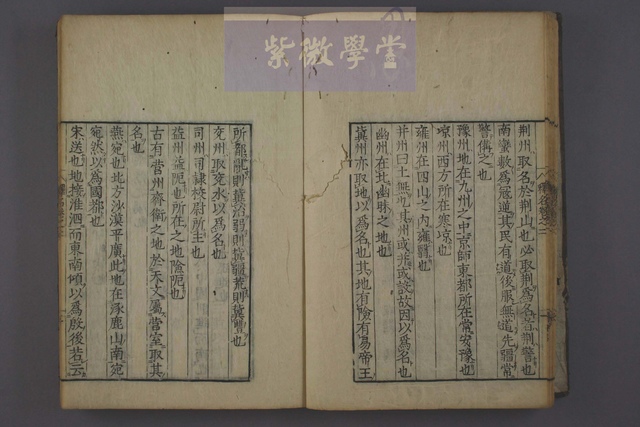 紫微學堂
荆州取名於荆山也必取荆爲名者荆警也
南蠻數爲冠逆其民有道後服無道先彊常
警備之也
豫州地在九州之中京師東都所在常安豫也
凉州西方所在寒凉也
雍州在四山之內雍翳也
并州曰土無也其州或并或設故因以爲名也
幽州在北幽昧之地也
冀州亦取地以爲名也其地有險有易帝王
所都亂則冀治弱則冀彊荒則冀豐也
兗州取兗水以爲名也
司州司隸校尉所主也
益州益阨也所在之地險阨也
古有營州齊衛之地於天文屬營室取其
名也
燕宛也北方沙漠平廣此地在涿鹿山南宛
宛然以爲國都也
宋送也地接淮泗而東南傾以爲殷後若云